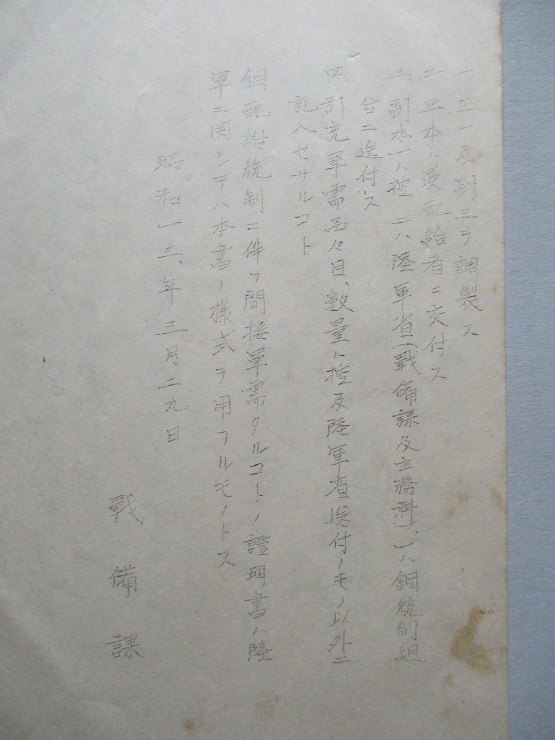 一、正一及副三ヲ調製ス
二、正本ハ受配給者ニ交付ス
三、副本一ハ控、二ハ陸軍省(戰備課及主務科)、一ハ銅統制組
合ニ送付ス
四、引充軍需品々目、數量ハ控及陸軍省送付ノモノ以外ニ
記入セサルコト
銅配給統制ニ伴フ間接軍需タルコトノ證明書ハ陸
軍ニ関シテハ本書ノ樣式ヲ用フルモノトス
昭和一三、年三月二九日
戰備課